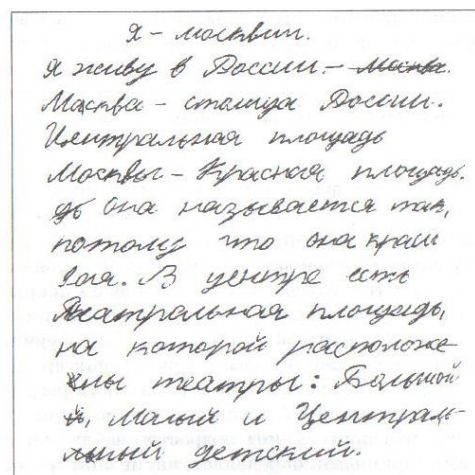 Я – москвич.
Я живу в России. – Москва.
Москва – столица России.
Центральная площадь
Москвы – Красная площадь.
дь она называется так,
потому что она краси
вая. В центре есть
Театральная площадь,
на которой расположе
нны театры: Большой
й, Малый и Централь–
льный детский.